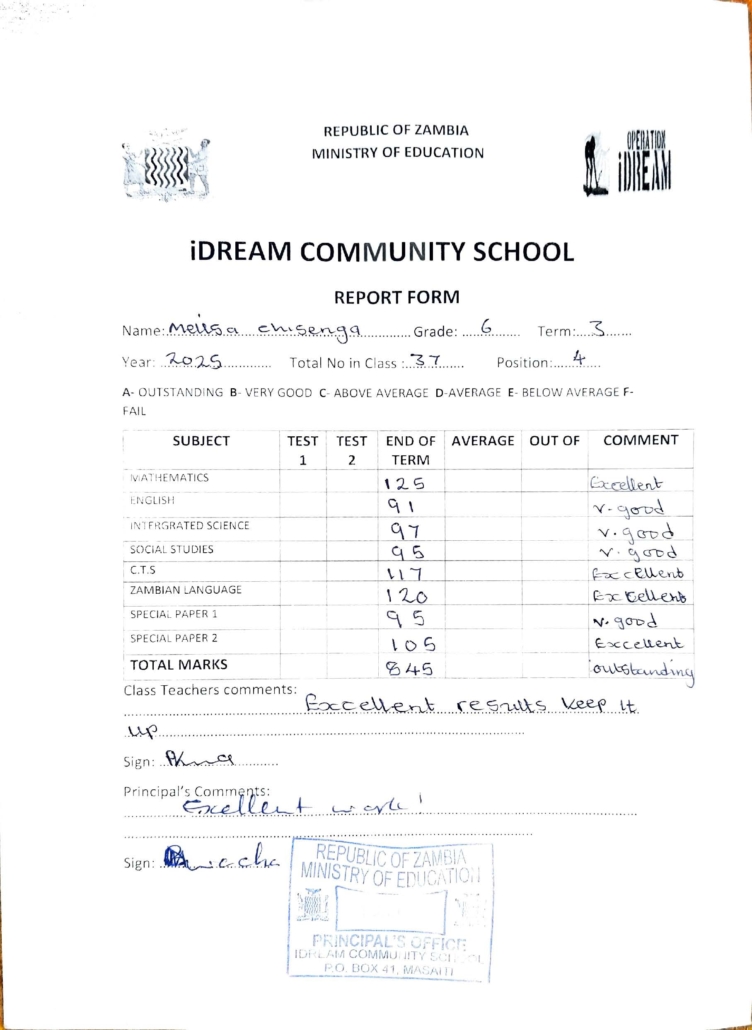 REPUBLIC OF ZAMBIA
MINISTRY OF EDUCATION
OPERATION
iDREAM
iDREAM COMMUNITY SCHOOL
REPORT FORM
Name: Melisa Chisenga Grade: 6 Term: 3
Year: 2025 Total No in Class : 37 Position: 4
A- OUTSTANDING B- VERY GOOD C- ABOVE AVERAGE D-AVERAGE E- BELOW AVERAGE F-
FAIL
SUBJECT TEST 1 TEST 2 END OF TERM AVERAGE OUT OF COMMENT
MATHEMATICS 125 Excellent
ENGLISH 91 v. good
INTERGRATED SCIENCE 97 v. good
SOCIAL STUDIES 95 v. good
C.T.S 117 Excellent
ZAMBIAN LANGUAGE 120 Excellent
SPECIAL PAPER 1 95 v. good
SPECIAL PAPER 2 105 Excellent
TOTAL MARKS 845 outstanding
Class Teachers comments: Excellent results keep it
up
Sign:
Principal's Comments:
Excellent work!
Sign:
REPUBLIC OF ZAMBIA
MINISTRY OF EDUCATION
PRINCIPAL'S OFFICE
IDREAM COMMUNITY SCHOOL
P.O. BOX 41, MASAITI